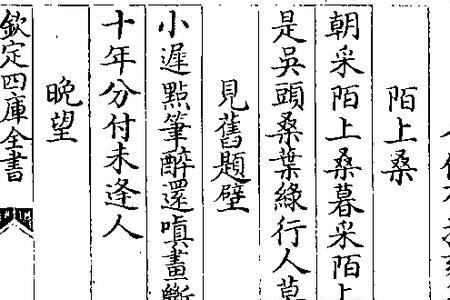 陌上桑
朝采陌上桑暮采陌上
是吳頭桑葉綠行人莫
見舊題壁
小遲點筆醉還嗔畫斷
十年分付未逢人
晚望
欽定四庫全書